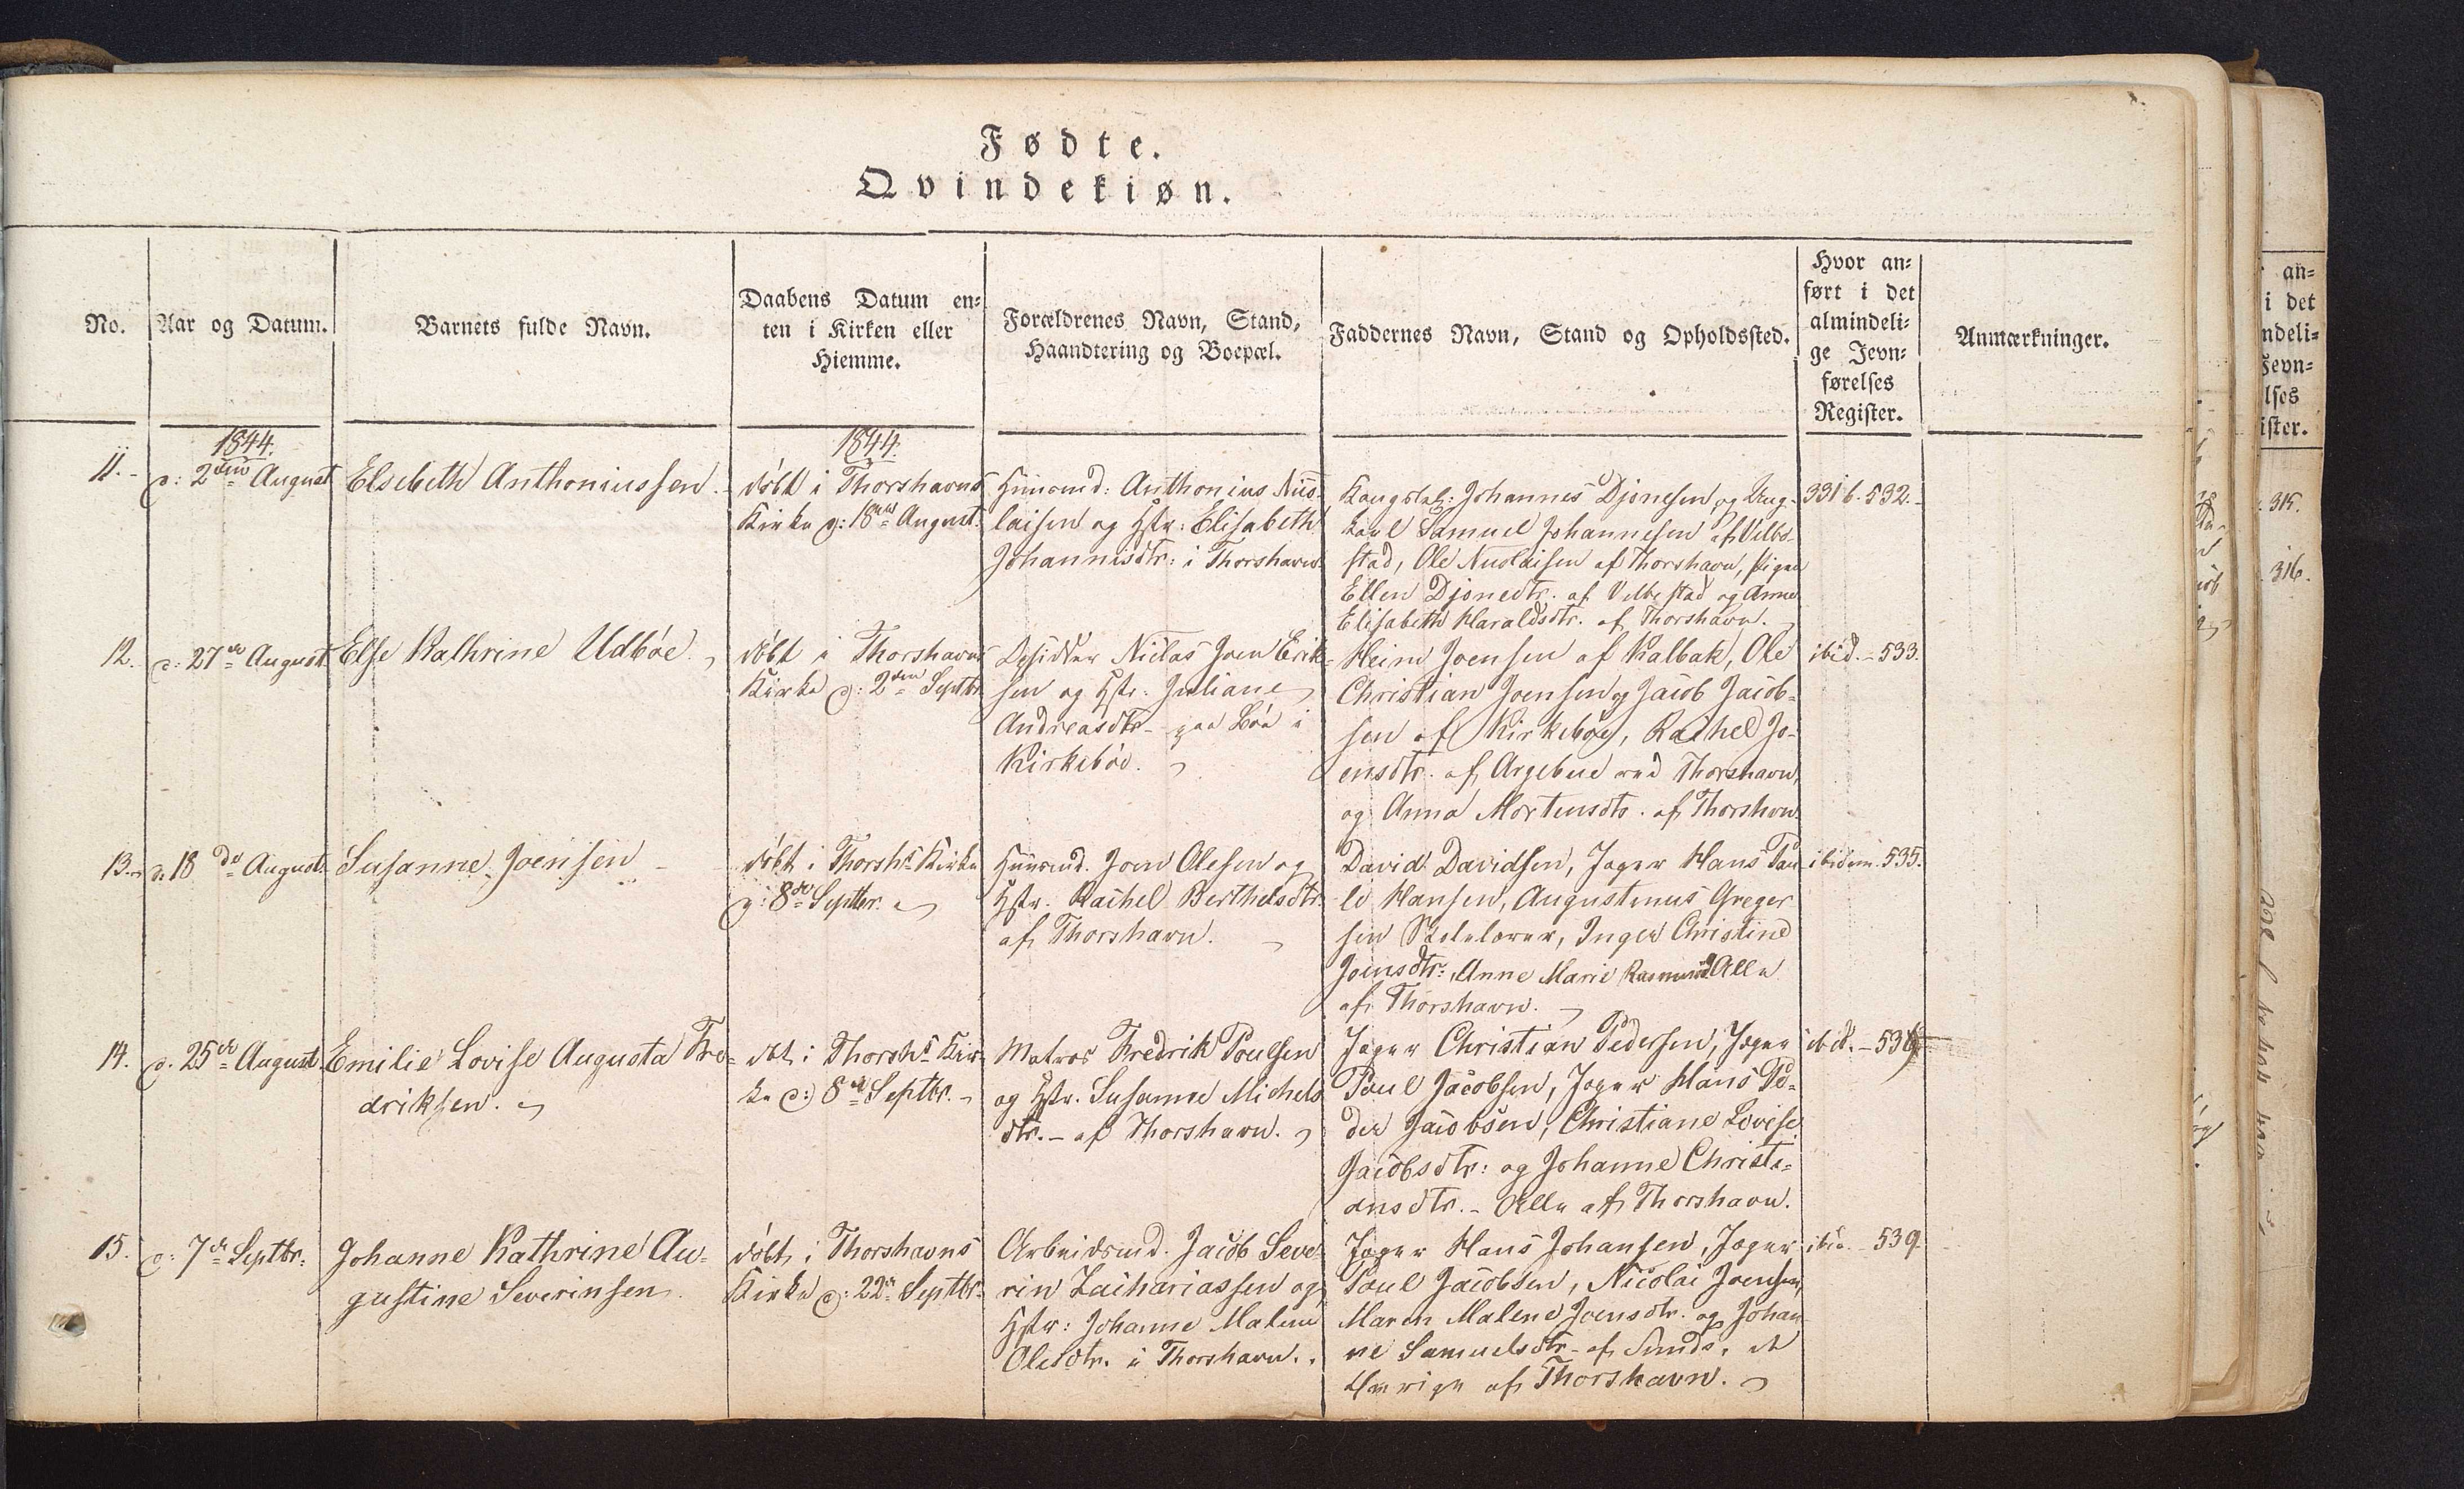 Fødte.
Qvindekiøn.
No.
Aar og Datum.
Barnets fulde Navn.
Daabens Datum en-
ten i Kirken eller
Hiemme.
Forældrenes Navn, Stand,
Haandtering og Boepæl.
Faddernes Navn, Stand og Opholdssted.
Hvor an-
ført i det
almindeli-
ge Jevn-
førelses
Register.
Anmærkninger.
11.
1844.
d: 2den August
Elsebeth Anthoniussen.
1844.
døbt i Thorshavns
Kirke d: 18de August.
Huusmd: Anthonius Nico-
laisen og Hstr: Elisabeth
Johannisdtr: i Thorshavn.
Kongsbd: Johannes Djonesen, og Ung-
karl Samuel Johannesen af Velbe-
stad, Ole Nicolaisen af Thorshavn, Pigen
Ellen Djonedtr. af Velbestad og Anne
Elisabeth Haraldsdtr. af Thorshavn.
331 b. 532.
12.
d: 27de August
Else Kathrine Udbøe.
døbt i Thorshavns
Kirke d: 2den Septbr
Niclas Joen Erik-
sen og Hstr. Juliane
Andreasdtr - paa Bøe i
Kirkebøe.
Heine Joensen af Kalbak, Ole
Christian Joensen og Jacob Jacob-
sen af Kirkebøe, Rachel Jo-
ensdtr. af Argebue ved Thorshavn,
og Anna Mortensdtr. af Thorshavn.
ibid. - 533.
13.
d. 18de August
Susanne Joensen
døbt i Thorshs Kirke
d: 8de Septbr.
Huusmd. Joen Olesen og
Hstr. Rachel Berthelsdtr.
af Thorshavn.
David Davidsen, Jæger Hans Pau-
li Hansen, Augustinus Greger
sen Skolelærer, Inger Christine
Joensdtr:, Anne Marie Rasmusd Alle
af Thorshavn.
ibidem. 535.
14.
d. 25de August
Emilie Lovise Augusta Fre-
driksen.
dbt i Thorshs Kir-
ke d: 8de Septbr.
Matros Fredrik Poulsen
og Hstr. Susanne Michels
dtr. - af Thorshavn.
Jæger Christian Pedersen, Jæger
Poul Jacobsen, Jæger Hans Pe-
der Jacobsen, Christiane Lovise
Jacobsdtr: og Johanne Christi-
ansdtr. - Alle af Thorshavn.
ibid. - 536
15.
d: 7de Septbr:
Johanne Kathrine Au-
gustine Severinsen.
døbt i Thorshavns
Kirke d: 22de Septbr.
Arbeidsmd. Jacob Seve-
rin Zachariassen og
Hstr: Johanne Malene
Olesdtr. i Thorshavn.
Jæger Hans Johansen, Jæger
Poul Jacobsen, Nicolai Joensen,
Maren Malene Joensdtr. og Johan
ne Samuelsdtr. - af Sunde, de
Øvrige af Thorshavn.
ibid. - 539.
an-
i det
ndeli-
Jevn-
lses
ister.
315.
316.